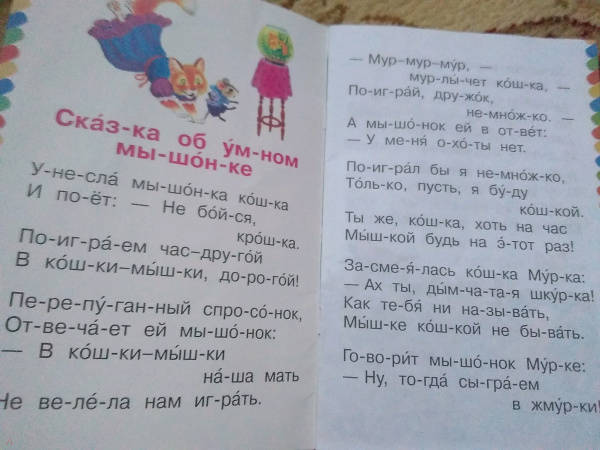 Ска́з-ка об у́м-ном
мы-шо́н-ке
У-не-сла́ мы-шо́н-ка ко́ш-ка
И по-ёт: — Не бо́й-ся,
кро́ш-ка.
По-иг-ра́-ем час–дру-го́й
В ко́ш-ки–мы́ш-ки, до-ро-го́й!
Пе-ре-пу́-ган-ный спро-со́-нок,
От-ве-ча́-ет ей мы-шо́-нок:
— В ко́ш-ки–мы́ш-ки
на́-ша мать
Не ве-ле́-ла нам иг-ра́ть.
— Мур–мур–му́р, —
мур-лы́-чет ко́ш-ка, —
По-иг-ра́й, дру-жо́к,
не-мно́ж-ко. —
А мы-шо́-нок ей в от-ве́т:
— У ме-ня́ о-хо́-ты нет.
По-иг-ра́л бы я не-мно́ж-ко,
То́ль-ко, пусть, я бу́-ду
ко́ш-кой.
Ты же, ко́ш-ка, хоть на час
Мы́ш-кой будь на э́-тот раз!
За-сме-я́-лась ко́ш-ка Му́р-ка:
— Ах ты, ды́м-ча-та-я шку́р-ка!
Как те-бя́ ни на-зы-ва́ть,
Мы́ш-ке ко́ш-кой не бы-ва́ть.
Го-во-ри́т мы-шо́-нок Му́р-ке:
— Ну, то-гда́ сы-гра́-ем
в жму́р-ки!